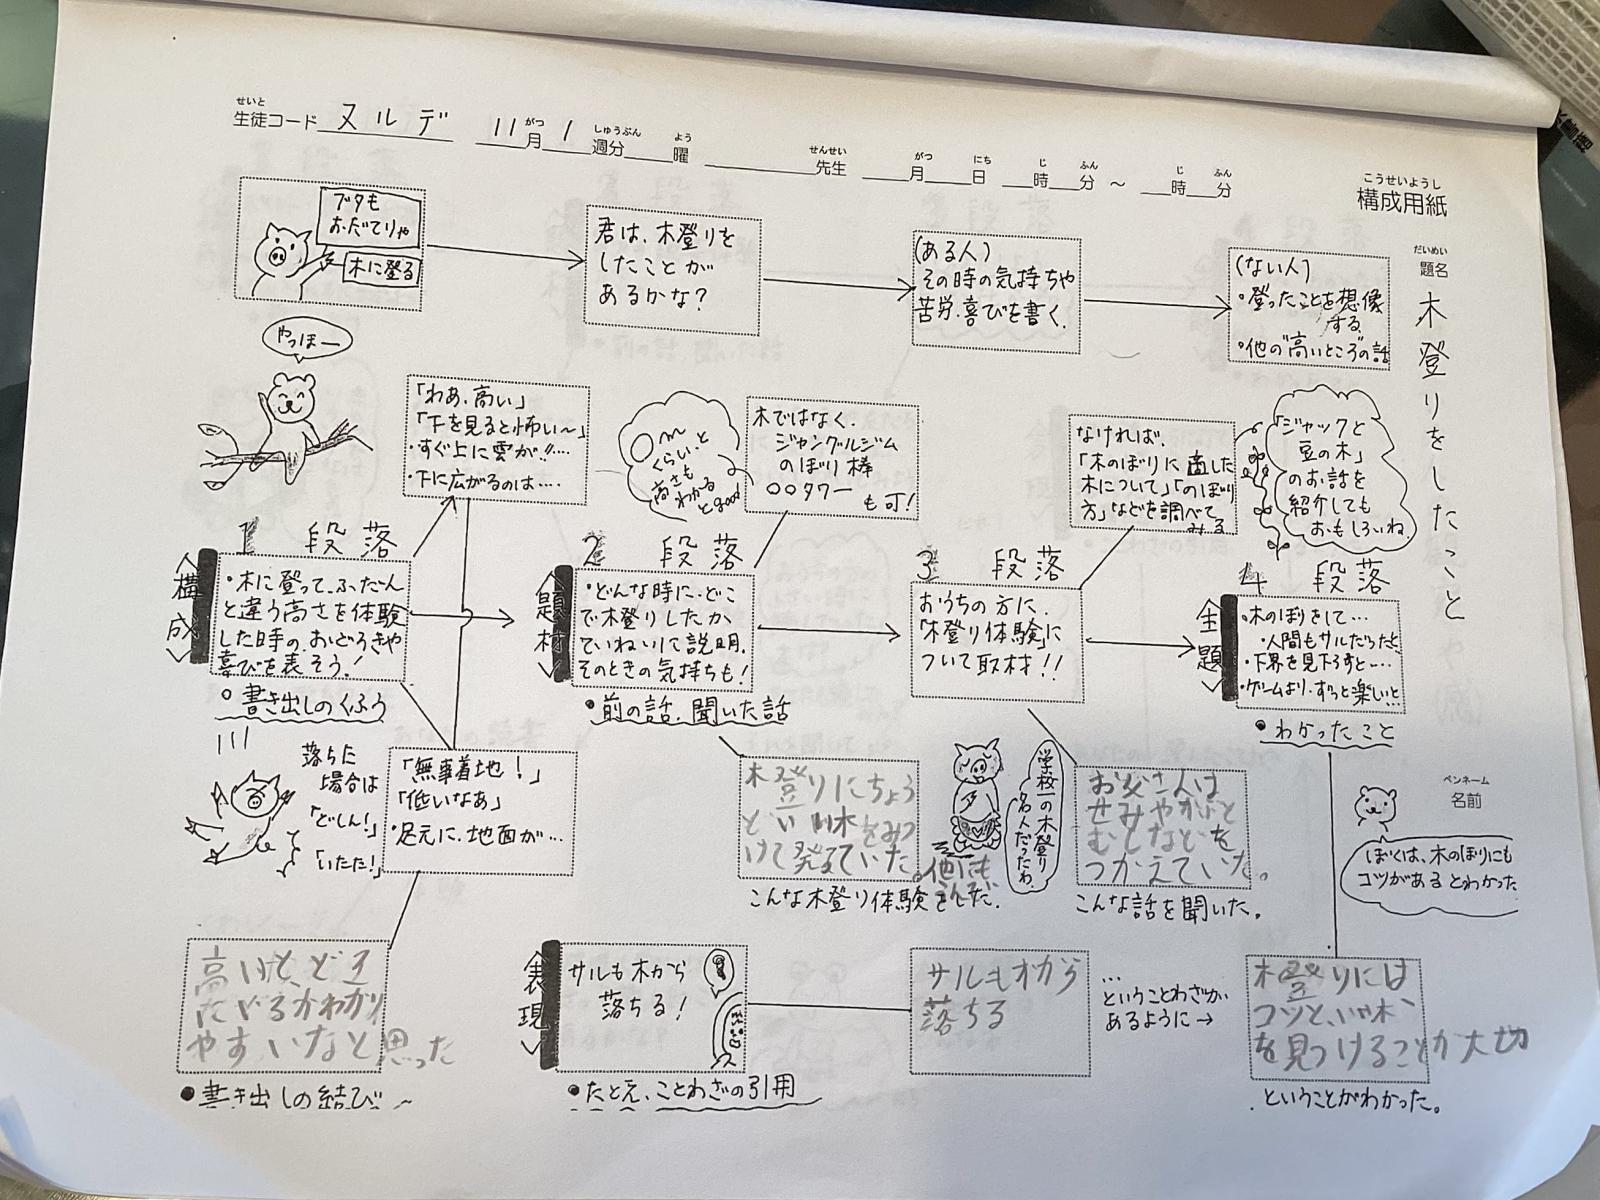 せいと
生徒コード ヌルデ 11月 1週分 曜 先生 月 日 時 分 ～ 時 分
がつ しゅうぶん よう せんせい がつ にち じ ふん じ ふん
こうせいようし
構成用紙
だいめい
題名
木登りをしたこと
ブタも
おだてりゃ
木に登る
君は、木登りを
したことが
あるかな?
(ある人)
その時の気持ちや
苦労、喜びを書く。
(ない人)
・登ったことを想像
する。
・他の“高いところ”の話
やっほー
「わぁ、高い」
「下を見ると怖い～」
・すぐ上に雲が!!…
・下に広がるのは…
○m
くらいと
高さも
わかる
とgood
木ではなく、
ジャングルジム
のぼり棒
○○タワー
も可!
なければ、
「木のぼりに適した
木について」「のぼり
方」などを調べて
みる
「ジャックと
豆の木」
のお話を
紹介しても
おもしろいね。
1 段落
<構成>
・木に登って、ふだん
と違う高さを体験
した時の、おどろきや
喜びを表そう!
○書き出しのくふう
2 段落
<題材>
・どんな時に、どこ
で木登りしたか
ていねいに説明。
そのときの気持ちも!
・前の話、聞いた話
3 段落
おうちの方に、
「木登り体験」に
ついて取材!!
4 段落
<主題>
・木のぼりをして…
・人間もサルだった
・下界を見下ろすと…
・ゲームより、ずっと楽しい…
・わかったこと
落ちた
場合は
「どしん!」
「いたた!」
「無事着地!」
「低いなあ」
・足元に、地面が…
木登りにちょう
どいい木をみつ
けて登っていた。
他にも
こんな木登り体験をした。
学校一の木登り
名人だったわ。
お父さんは
せみやかぶと
むしなどを
つかまえていた。
こんな話を聞いた。
ペンネーム
名前
ぼくは、木のぼりにも
コツがあるとわかった
高いとどこ
になにがあるかわかり
やすいなと思った
・書き出しの結び～
<表現>
サルも木から
落ちる!
・たとえ、ことわざの引用
サルも木から
落ちる
…
ということわざが
あるように→
木登りには
コツと、いい木
を見つけることが大切
ということがわかった。